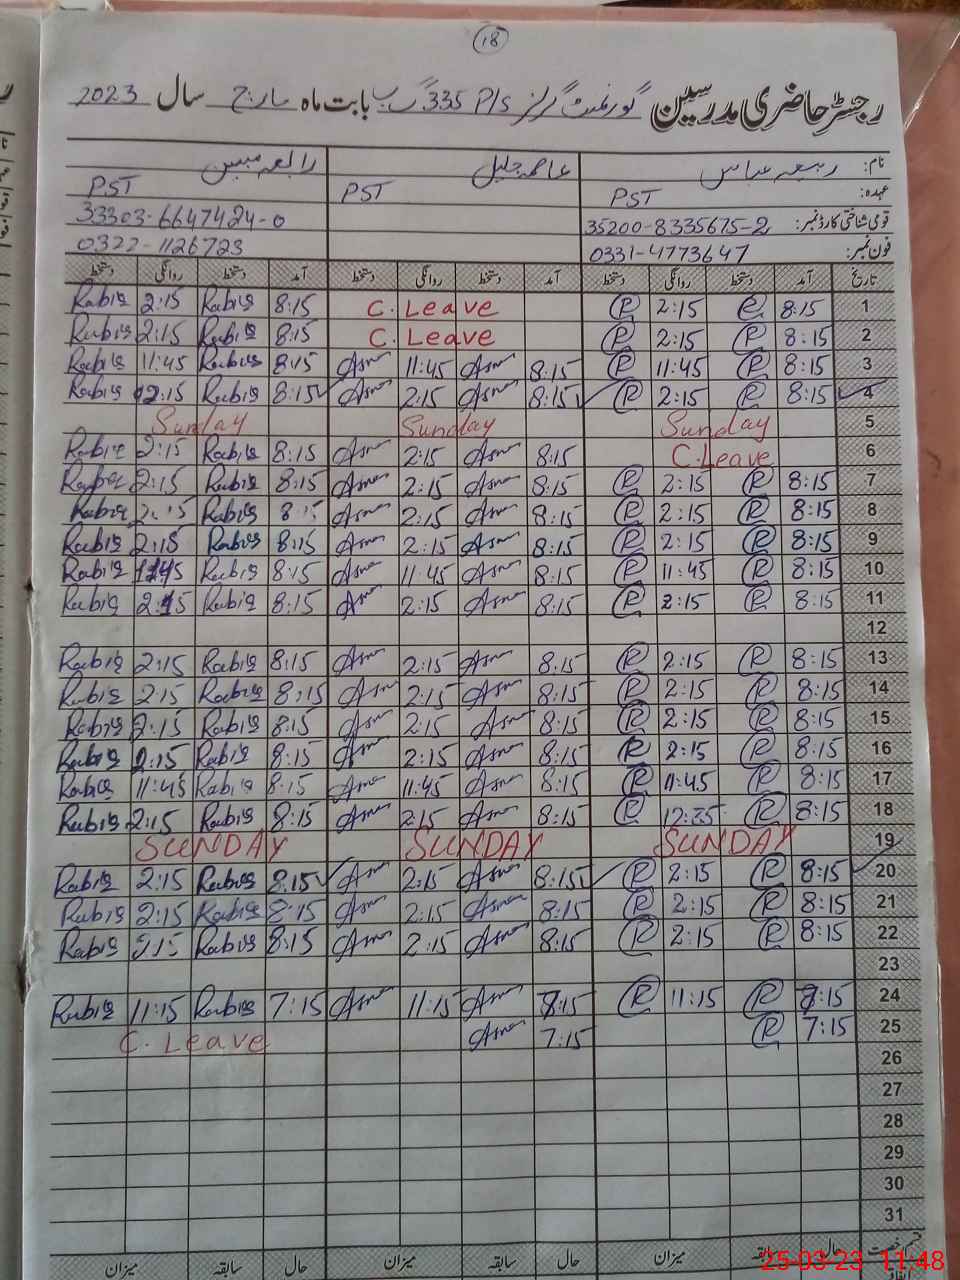 18
رجسٹر حاضری مدرسین گورنمنٹ گرلز P/S 335 گ ب بابت ماہ مارچ سال 2023
نام: ربیعہ عباس عاصمہ جلیل رابعہ مبین
عہدہ: PST PST PST
قومی شناختی کارڈ نمبر: 35200-8335675-2 33303-6647424-0
فون نمبر: 0331-4773647 0322-1126723
تاریخ آمد دستخط روانگی دستخط آمد دستخط روانگی دستخط آمد دستخط روانگی دستخط
1 8:15 R 2:15 R C. Leave 8:15 Rabia 2:15 Rabia
2 8:15 R 2:15 R C. Leave 8:15 Rabia 2:15 Rabia
3 8:15 R 11:45 R 8:15 Asma 11:45 Asma 8:15 Rabia 11:45 Rabia
4 8:15 R 2:15 R 8:15 Asma 2:15 Asma 8:15 Rabia 2:15 Rabia
5 Sunday Sunday Sunday
6 C.Leave 8:15 Asma 2:15 Asma 8:15 Rabia 2:15 Rabia
7 8:15 R 2:15 R 8:15 Asma 2:15 Asma 8:15 Rabia 2:15 Rabia
8 8:15 R 2:15 R 8:15 Asma 2:15 Asma 8:15 Rabia 2:15 Rabia
9 8:15 R 2:15 R 8:15 Asma 2:15 Asma 8:15 Rabia 2:15 Rabia
10 8:15 R 11:45 R 8:15 Asma 11:45 Asma 8:15 Rabia 1145 Rabia
11 8:15 R 2:15 R 8:15 Asma 2:15 Asma 8:15 Rabia 2:15 Rabia
12
13 8:15 R 2:15 R 8:15 Asma 2:15 Asma 8:15 Rabia 2:15 Rabia
14 8:15 R 2:15 R 8:15 Asma 2:15 Asma 8:15 Rabia 2:15 Rabia
15 8:15 R 2:15 R 8:15 Asma 2:15 Asma 8:15 Rabia 2:15 Rabia
16 8:15 R 2:15 R 8:15 Asma 2:15 Asma 8:15 Rabia 2:15 Rabia
17 8:15 R 11:45 R 8:15 Asma 11:45 Asma 8:15 Rabia 11:45 Rabia
18 8:15 R 12:35 R 8:15 Asma 2:15 Asma 8:15 Rabia 2:15 Rabia
19 SUNDAY SUNDAY SUNDAY
20 8:15 R 2:15 R 8:15 Asma 2:15 Asma 8:15 Rabia 2:15 Rabia
21 8:15 R 2:15 R 8:15 Asma 2:15 Asma 8:15 Rabia 2:15 Rabia
22 8:15 R 2:15 R 8:15 Asma 2:15 Asma 8:15 Rabia 2:15 Rabia
23
24 7:15 R 11:15 R 7:15 Asma 11:15 Asma 7:15 Rabia 11:15 Rabia
25 7:15 R 7:15 Asma C. Leave
26
27
28
29
30
31
قسم رخصت حال سابقہ میزان حال سابقہ میزان حال سابقہ میزان
25-03-23 11:48